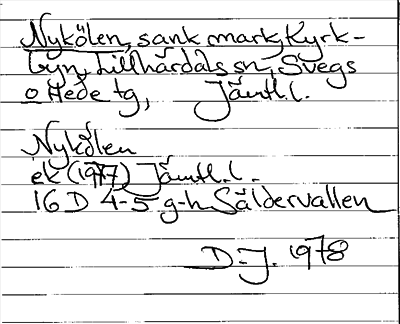 Nykölen, sank mark, Kyrk-
byn, Lillhärdals sn, Svegs
o Hede tg, Jämtl.l.
Nykölen
ek (1977) Jämtl.l.
16 D 4-5 g-h Säldervallen
D.J. 1978